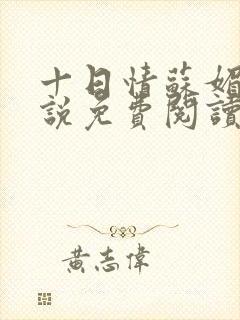 十日情蘇媚
說免費閱讀
黃志偉